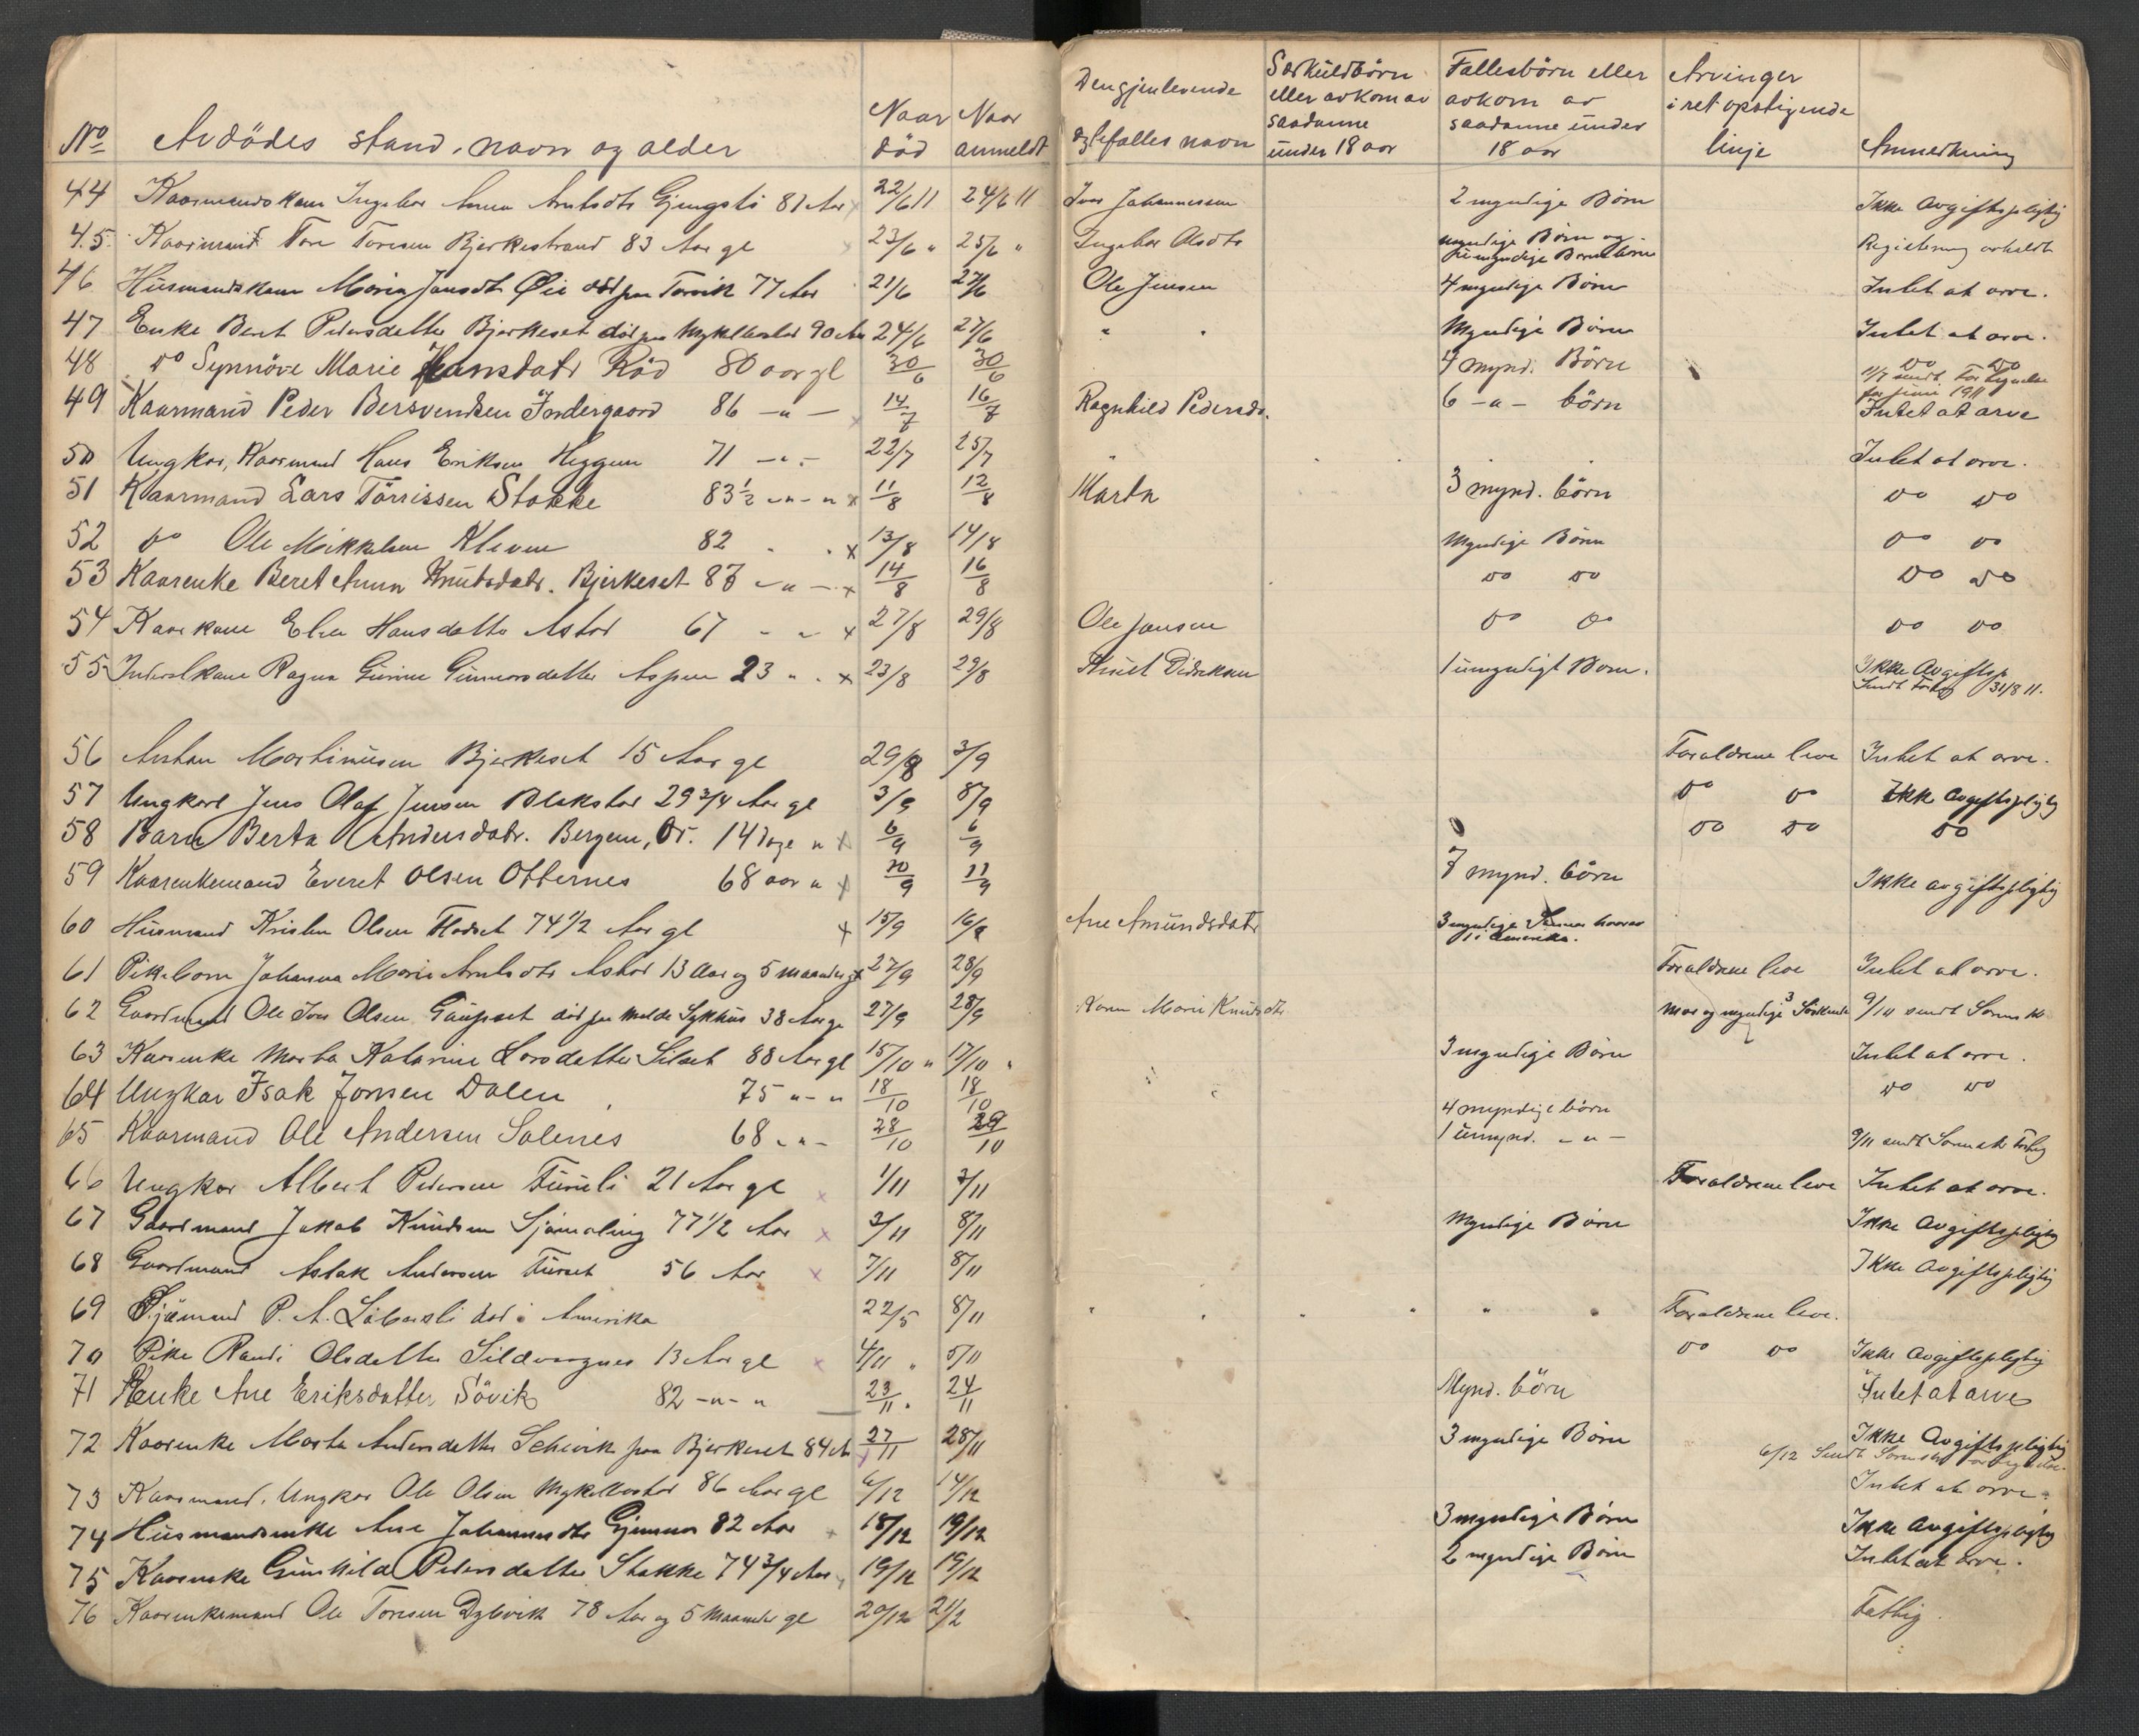 No Avdödes stand, navn og alder Naar död Naar anmeldt Den gjenlevende ægtefælles navn Særkuldbörn eller avkom av saadanne under 18 aar Fællesbörn eller avkom av saadanne under 18 aar Arvinger i ret opstigende linje Anmerkning
44 Kaarmandskone Ingebor Anna Arntsdtr 81 Aar 22/6 11 24/6 11 Iver Johannessen 2 myndige Börn Ikke Avgiftspligtig
45 Kaarmand Tore Toresen Bjerkestrand 83 Aar gl 23/6 " 25/6 " Ingebor Olsdtr myndige Börn og umyndige Barnebörn Registrering avholdt
46 Husmandskone Maria Jansdtr Øie död paa Torvik 77 Aar 21/6 27/6 Ole Jensen 4 myndige Börn Intet at arve.
47 Enke Beret Pedersdatter Bjerkeset död paa Myklebostad 90 Aar 24/6 27/6 " " Myndige Börn Intet at arve.
48 do Synnöve Marie Hansdatr Röd 80 aar gl 30/6 30/6 4 mynd. Börn do do
11/7 sendt Fortegnelse for juni 1911
49 Kaarmand Peder Bersvendsen Jondergaard 86 -"- 14/7 16/7 Ragnhild Pedersdr. 6 -"- börn Intet at arve
50 Ungkar, Kaarmand Hans Eriksen Heggem 71 -"- 22/7 25/7 " Intet at arve.
51 Kaarmand Lars Törrissen Stokke 83½ -"- " x 11/8 12/8 Marta 3 mynd. börn do do
52 do Ole Mikkelsen Kleven 82 " " x 13/8 14/8 Myndige Börn do do
53 Kaarenke Beret Anna Knutsdatr. Bjerkeset 83 -"- x 14/8 16/8 do do do do
54 Kaarkone Elen Hansdatter Astad 67 " " x 27/8 29/8 Ole Jansen do do do do
55 Inderstkone Ragna Gurine Gunnarsdatter Aspen 23 " " x 23/8 29/8 Knut Didriksen 1 umyndigt Barn. Ikke Avgiftsp
Sendt Forteg 31/8 11.
56 Anton Martinusen Bjerkeset 15 Aar gl 29/8 3/9 Forældrene leve Intet at arve.
57 Ungkarl Jens Olaf Jensen Blakstad 29 3/4 Aar gl 3/9 8/9 do do Ikke Avgiftspligtig
58 Barn Berta Andersdatr. Bergem, Ör. 14 dage " x 6/9 6/9 do do do
59 Kaarenkemand Everet Olsen Otternes 68 aar " x 10/9 11/9 7 mynd. börn Ikke avgiftspligtig
60 Husmand Kristen Olsen Flodset 74 1/2 Aar gl x 15/9 16/9 Ane Amundsdatr 3 myndige Sönner hvorav 1 i Amerika.
61 Pikebarn Johanna Marie Arntsdtr Astad 13 Aar og 5 maaneder gl 27/9 28/9 Forældrene leve Intet at arve.
62 Gaardmand Ole Iver Olsen Gaupset död paa Molde Sykhus 38 Aar gl 27/9 28/9 Karen Marie Knutsdtr Mor og myndige 3 Söskende 9/10 sendt Sorensk
63 Kaarenke Marta Katarine Larsdatter Silset 88 Aar gl 15/10 " 17/10 " 3 myndige Börn Intet at arve.
64 Ungkar Isak Jonsen Dalen 75 "-" 18/10 18/10 do do
65 Kaarmand Ole Andersen Solenes 68 -"- 28/10 29/10 4 myndige börn
1 umynd. -"- 9/11 sendt Sorensk Forteg
66 Ungkar Albert Pedersen Furuli 21 Aar gl x 1/11 3/11 Forældrene leve Intet at arve.
67 Gaardmand Jakob Knudsen Sjömæling 77 1/2 Aar x 3/11 8/11 Myndige Börn Ikke Avgiftspligtig
68 Gaardmand Aslak Andersen Furset 56 Aar x 7/11 8/11 Ikke Avgiftspligtig
69 Sjömand P. A. död i Amerika 22/5 8/11 " " " " " " Forældrene leve.
70 Pike Randi Olsdatter Sildvaagnes 13 Aar gl x 4/11 " 5/11 do do Ikke Avgiftspligtig
71 Enke Ane Eriksdatter Sövik 82 -"- " 23/11 " 24/11 Mynd. börn Intet at arve
72 Kaarenke Marta Andersdatter paa Bjerkeset 84 Aar 27/11 28/11 3 myndige Börn Ikke Avgiftspligtig
6/12 Sendt Sorensk Fortegnelse.
73 Kaarmand, Ungkar Ole Olsen Myklebostad 86 Aar gl 6/12 14/12 Intet at arve.
74 Husmandsenke Ane Johannesdtr Gjemnes 82 Aar x 18/12 19/12 3 myndige Börn Ikke Avgiftspligtig
75 Kaarenke Gunhild Pedersdatter Stokke 74 3/4 Aar 19/12 19/12 2 myndige Börn Intet at arve.
76 Kaarenkemand Ole Toresen Dybvik 78 Aar og 5 Maaneder gl 20/12 21/2 Fattig.